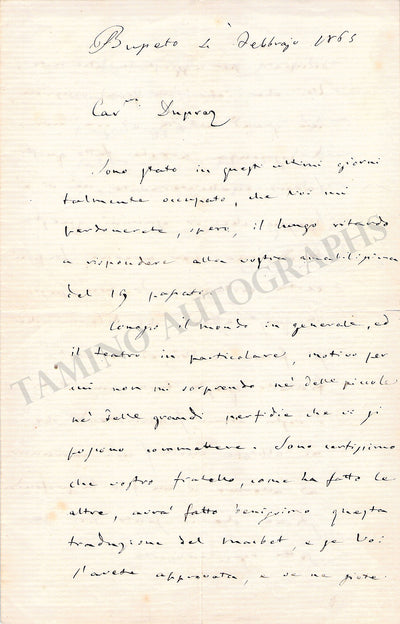 Busseto 4 Febbrajo 1865
Car.mo Duprez
Sono stato in questi ultimi giorni
talmente occupato, che voi mi
perdonerete, spero, il lungo ritardo
a rispondere alla vostra amabilissima
del 19 passato.
Conosco il mondo in generale, ed
il teatro in particolare, motivo per
cui non mi sorprendo nè delle piccole
nè delle grandi perfidie che vi si
possono commettere. Sono certissimo
che vostro fratello, come ha fatto le
altre, avrà fatto benissimo questa
traduzione del Macbet, e se Voi
l'avete approvata, e se ne siete
TAMINO AUTOGRAPHS